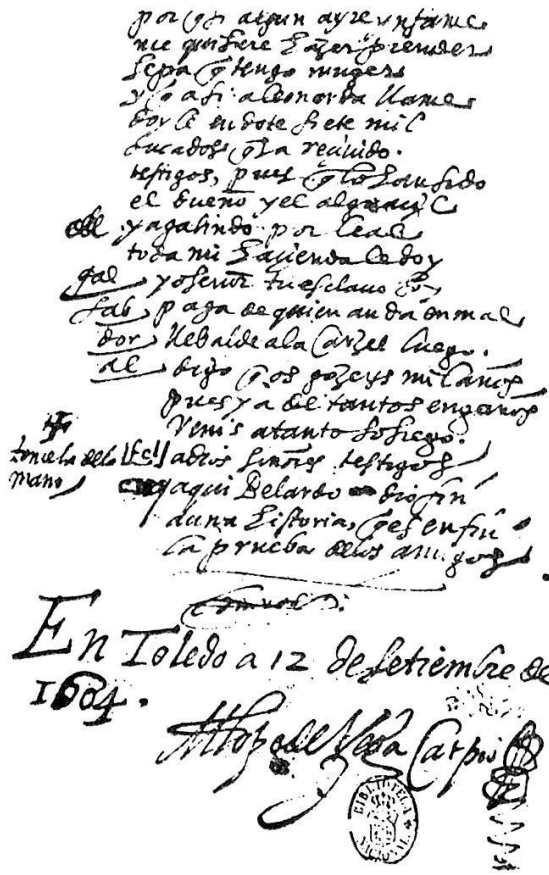 por q̃ si algun ayre infame
me quisiere hazer prender
sepa q̃ tengo muger
y q̃ asi a leonarda llame
dor le en dote siete mil
ducados q̃ ya recivido.
testigos, pues q̃ lo han sido
el dueño y el alguaçil
y a galindo por leal
toda mi hazienda le doy
gal yo señor tu esclavo soy
fab paga de quien anda en mal
dor llebalde a la carzel luego.
al digo q̃ os gozeys mil años
pues ya de tantos engaños
venis a tanto sosiego.
tomela de la mano
adios señores testigos
aqui Belardo dio fin
a una historia, q̃ es en fin
la prueba de los amigos
En Toledo a 12 de setiembre de
1604.
Lope de Vega Carpio
BIBLIOTECA NACIONAL